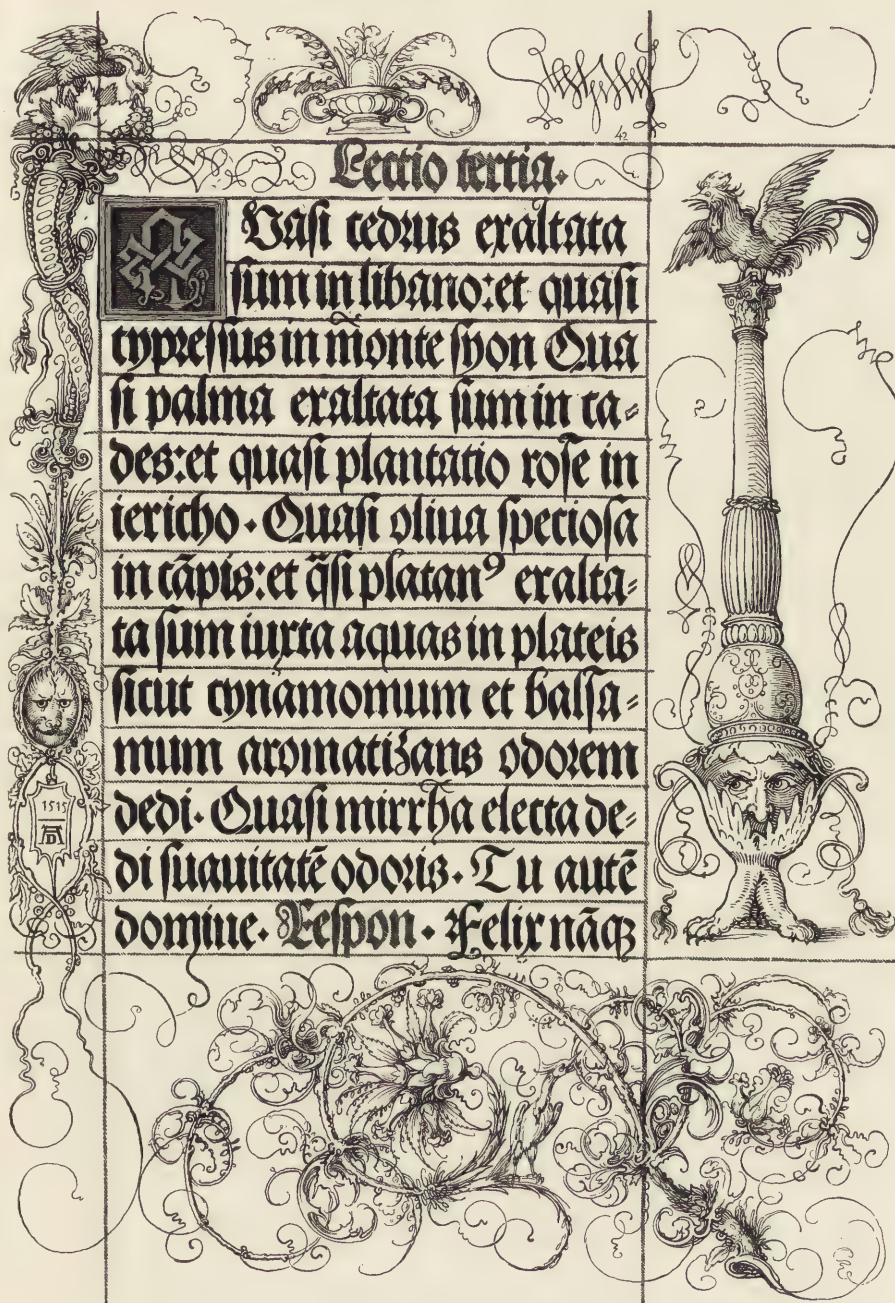 42
Lectio tertia.
QUasi cedrus exaltata
sum in libano: et quasi
cypressus in mōnte syon Qua
si palma exaltata sum in ca-
des: et quasi plantatio rose in
iericho. Quasi oliua speciosa
in cāpis: et q̄si platanꝰ exalta-
ta sum iuxta aquas in plateis
sicut cynamomum et balsa-
mum aromatizans odorem
dedi. Quasi mirrha electa de-
di suauitatē odoris. Tu autē
domine. Respon. Felix nāqꝫ
1515
AD